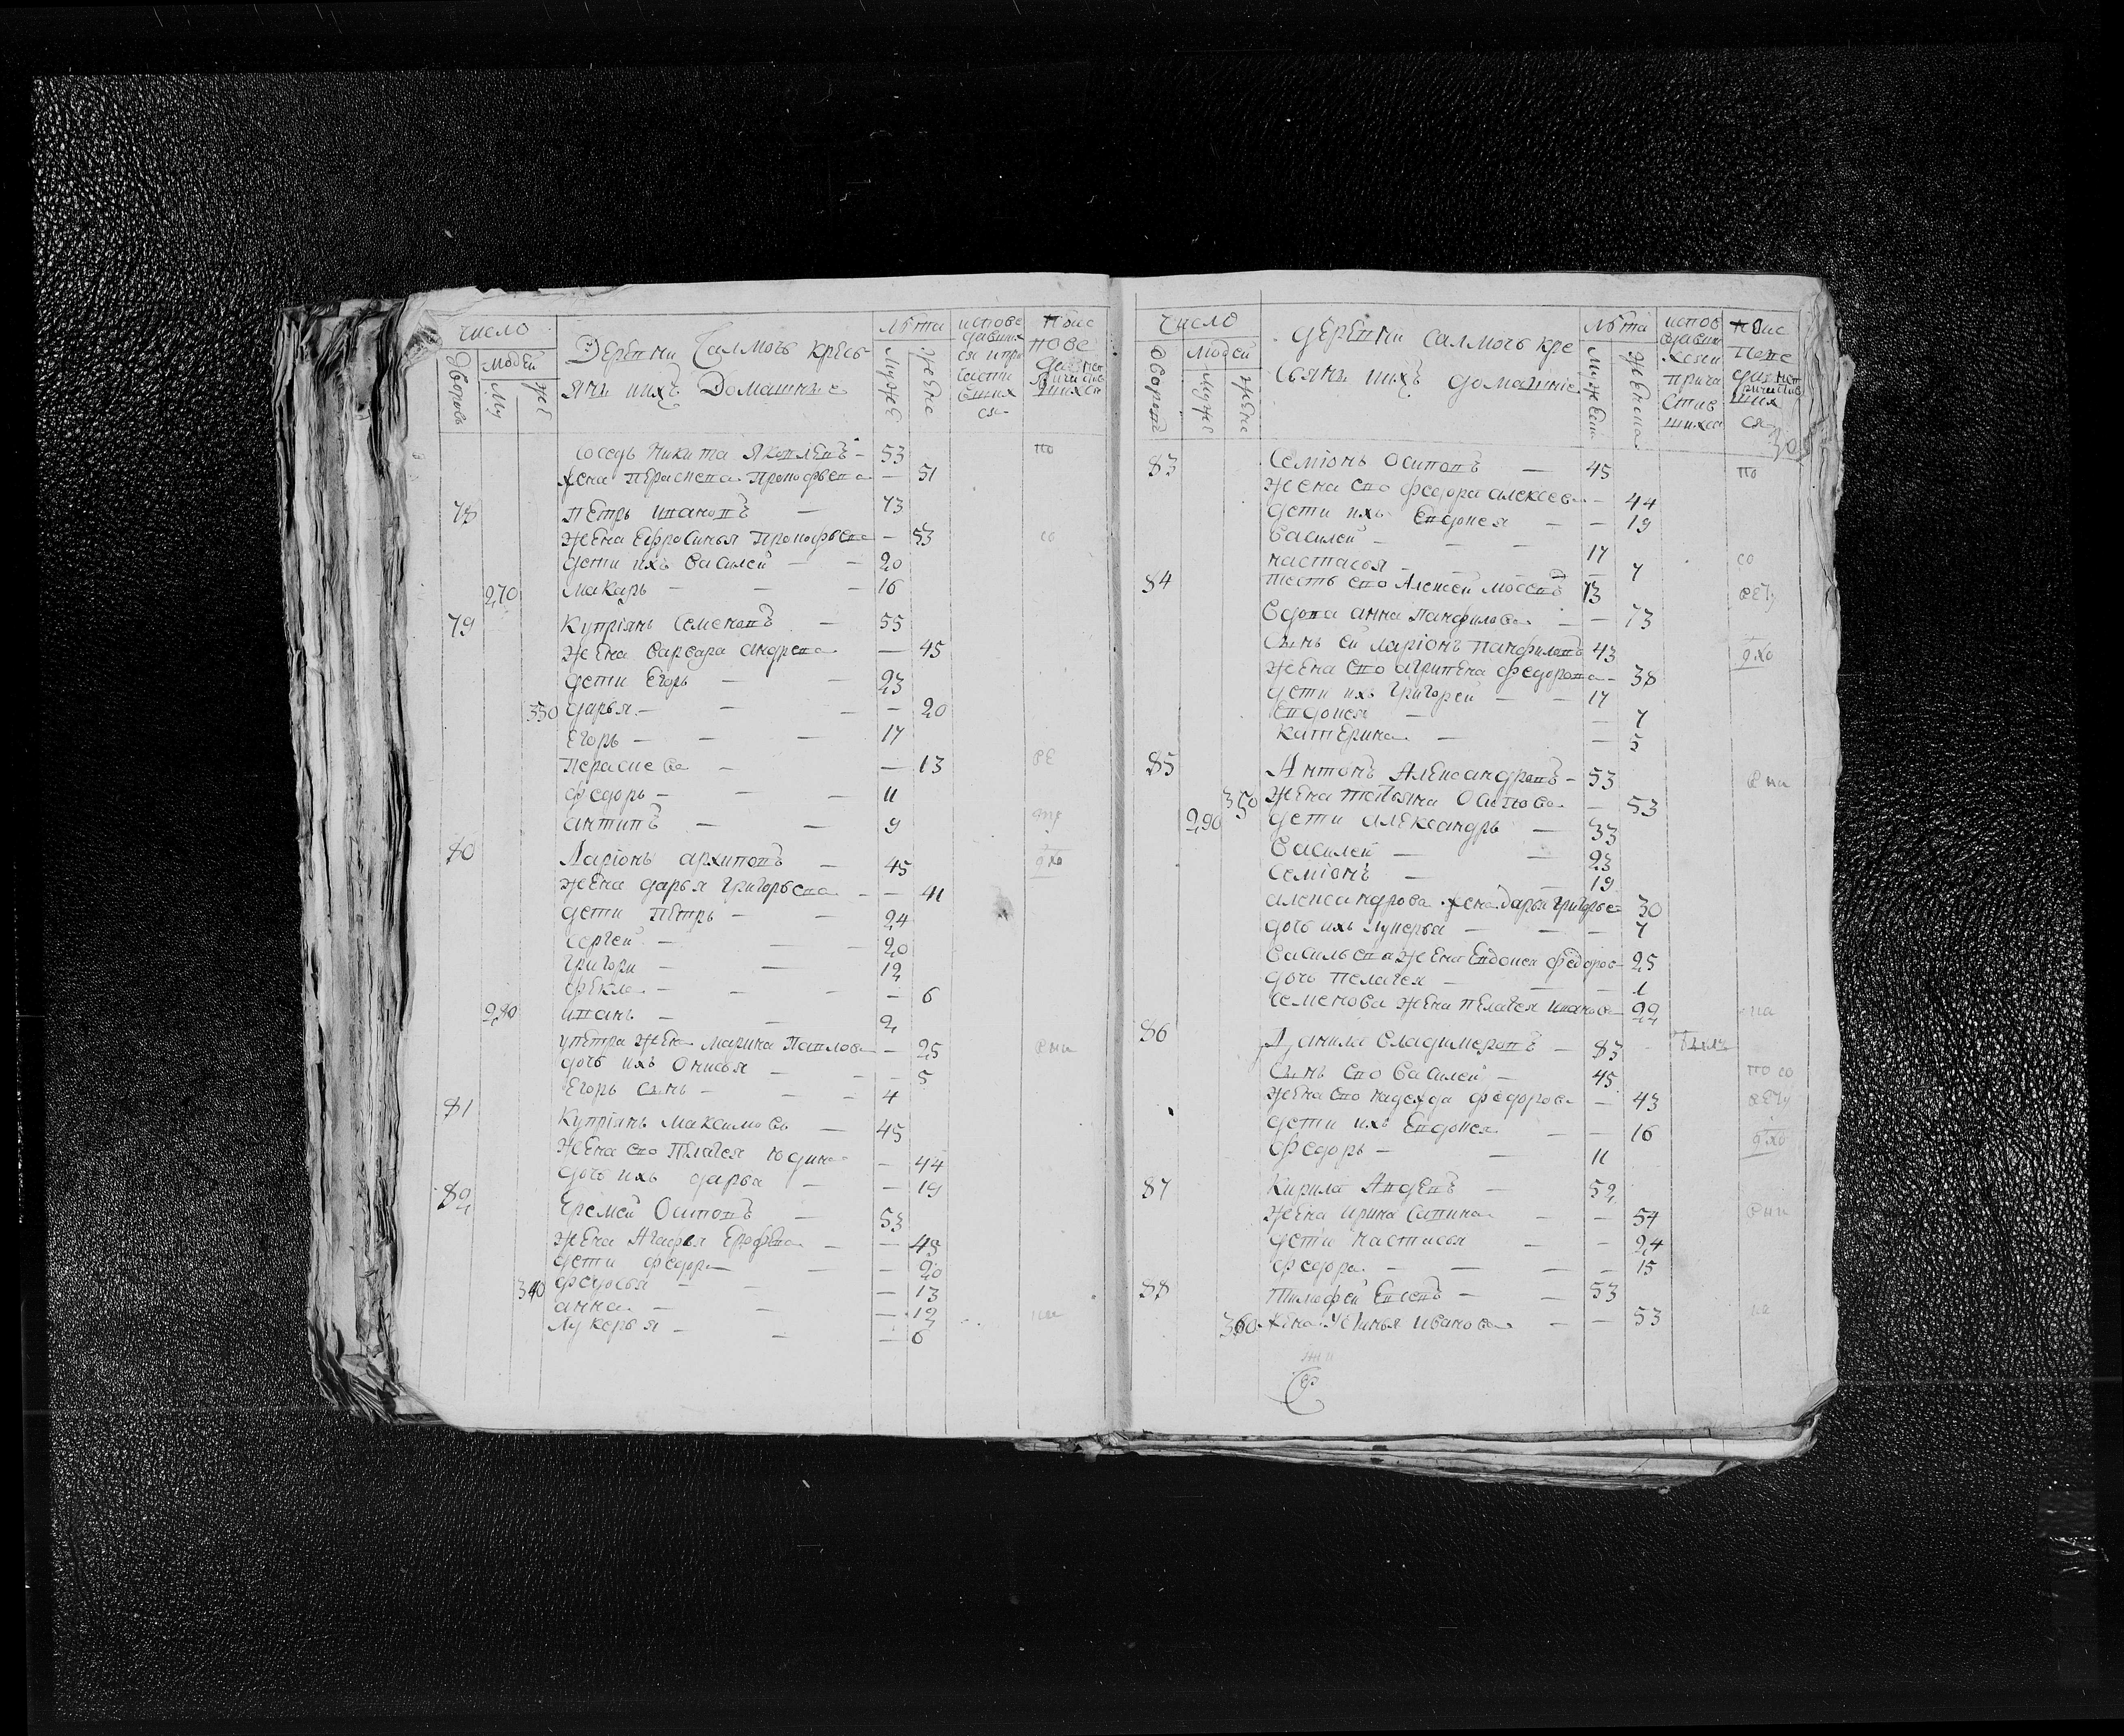 число
Дворовъ
людей
Му
же
Деревни Саммочь кресь
янъ иихъ Домашные
лѣта
мужес
женс
испове
давших
ся и при
части
вших
ся
не ис
пове
соседь Никита Яковлевъ — 53 по
жена Пераскева Прокофьева — 51
78 Петръ Ивановъ — 73
жена Ефросинья Прокофьева — 53 со
дети ихъ Василей — 20
270 Макаръ — 16
79 Куприянъ Семеновъ — 55
жена Варвара Андреева — 45
дети Егоръ — 23
330 дарья — 20
Егоръ — 17
Пераскева — 13 ре
федоръ — 11
антипъ — 9
80 Ларионъ архиповъ — 45
жена дарья Григорьева — 41
дети Петръ — 24
Сергей — 20
Григори — 12
фекла — 6
280 иванъ — 2
у петра жена Марина Павлова — 25
дочь ихъ Онисья — 5
Егоръ сынь — 4
81 Куприянъ Максимовъ — 45
жена ево Пелагея юдина — 44
дочь ихъ дарья — 19
82 Еремей Осиповъ — 53
жена Агафья — 48
дети федора — 20
340 федосья — 13
анна — 12
Лукерья — 6
число
дворовъ
людей
Муже
Жена
деревни Саммочь кре
сьянъ ихъ домашние
лѣта
Мужеска
Женска
испов
едавши
хсяи
прича
стив
шихся
не ис
пове
ших
ся
83 Семионъ Осиповъ — 45 по
жена ево федора алексева — 44
дети ихъ Евдокея — 19
Василей — 17
настасья — 7 со
84 тесть ево Алексей Мосеевъ 73
вдова анна Панфилова — 73
сынъ ей Ларионъ Панфиловъ 43
жена ево агрипена федорова — 38
дети ихъ Григорей — 17
Евдокея — 7
Катерина — 5
85 Антонъ Александровъ — 53
350 жена татьяна Осипова — 53
290 дети александръ — 33
Василей — 23
Семионъ — 19
александрова жена дарья григорьев 30
дочь ихъ лукерья — 7
Васильева жена Евдокея федоров 25
дочь пелагея — 1
Семенова жена пелагея иванова 22
86 Данила Владимеровъ — 83
сынъ ево Василей — 45 по со
жена ево надежда федорова — 43
дети ихъ Евдокея — 16
федоръ — 11
87 Кирила Авдеевъ — 52
жена ирина — 54
дети настасья — 24
федора — 15
88 Тимофей Евсеевъ — 53
360 жена Устинья Иванова — 53